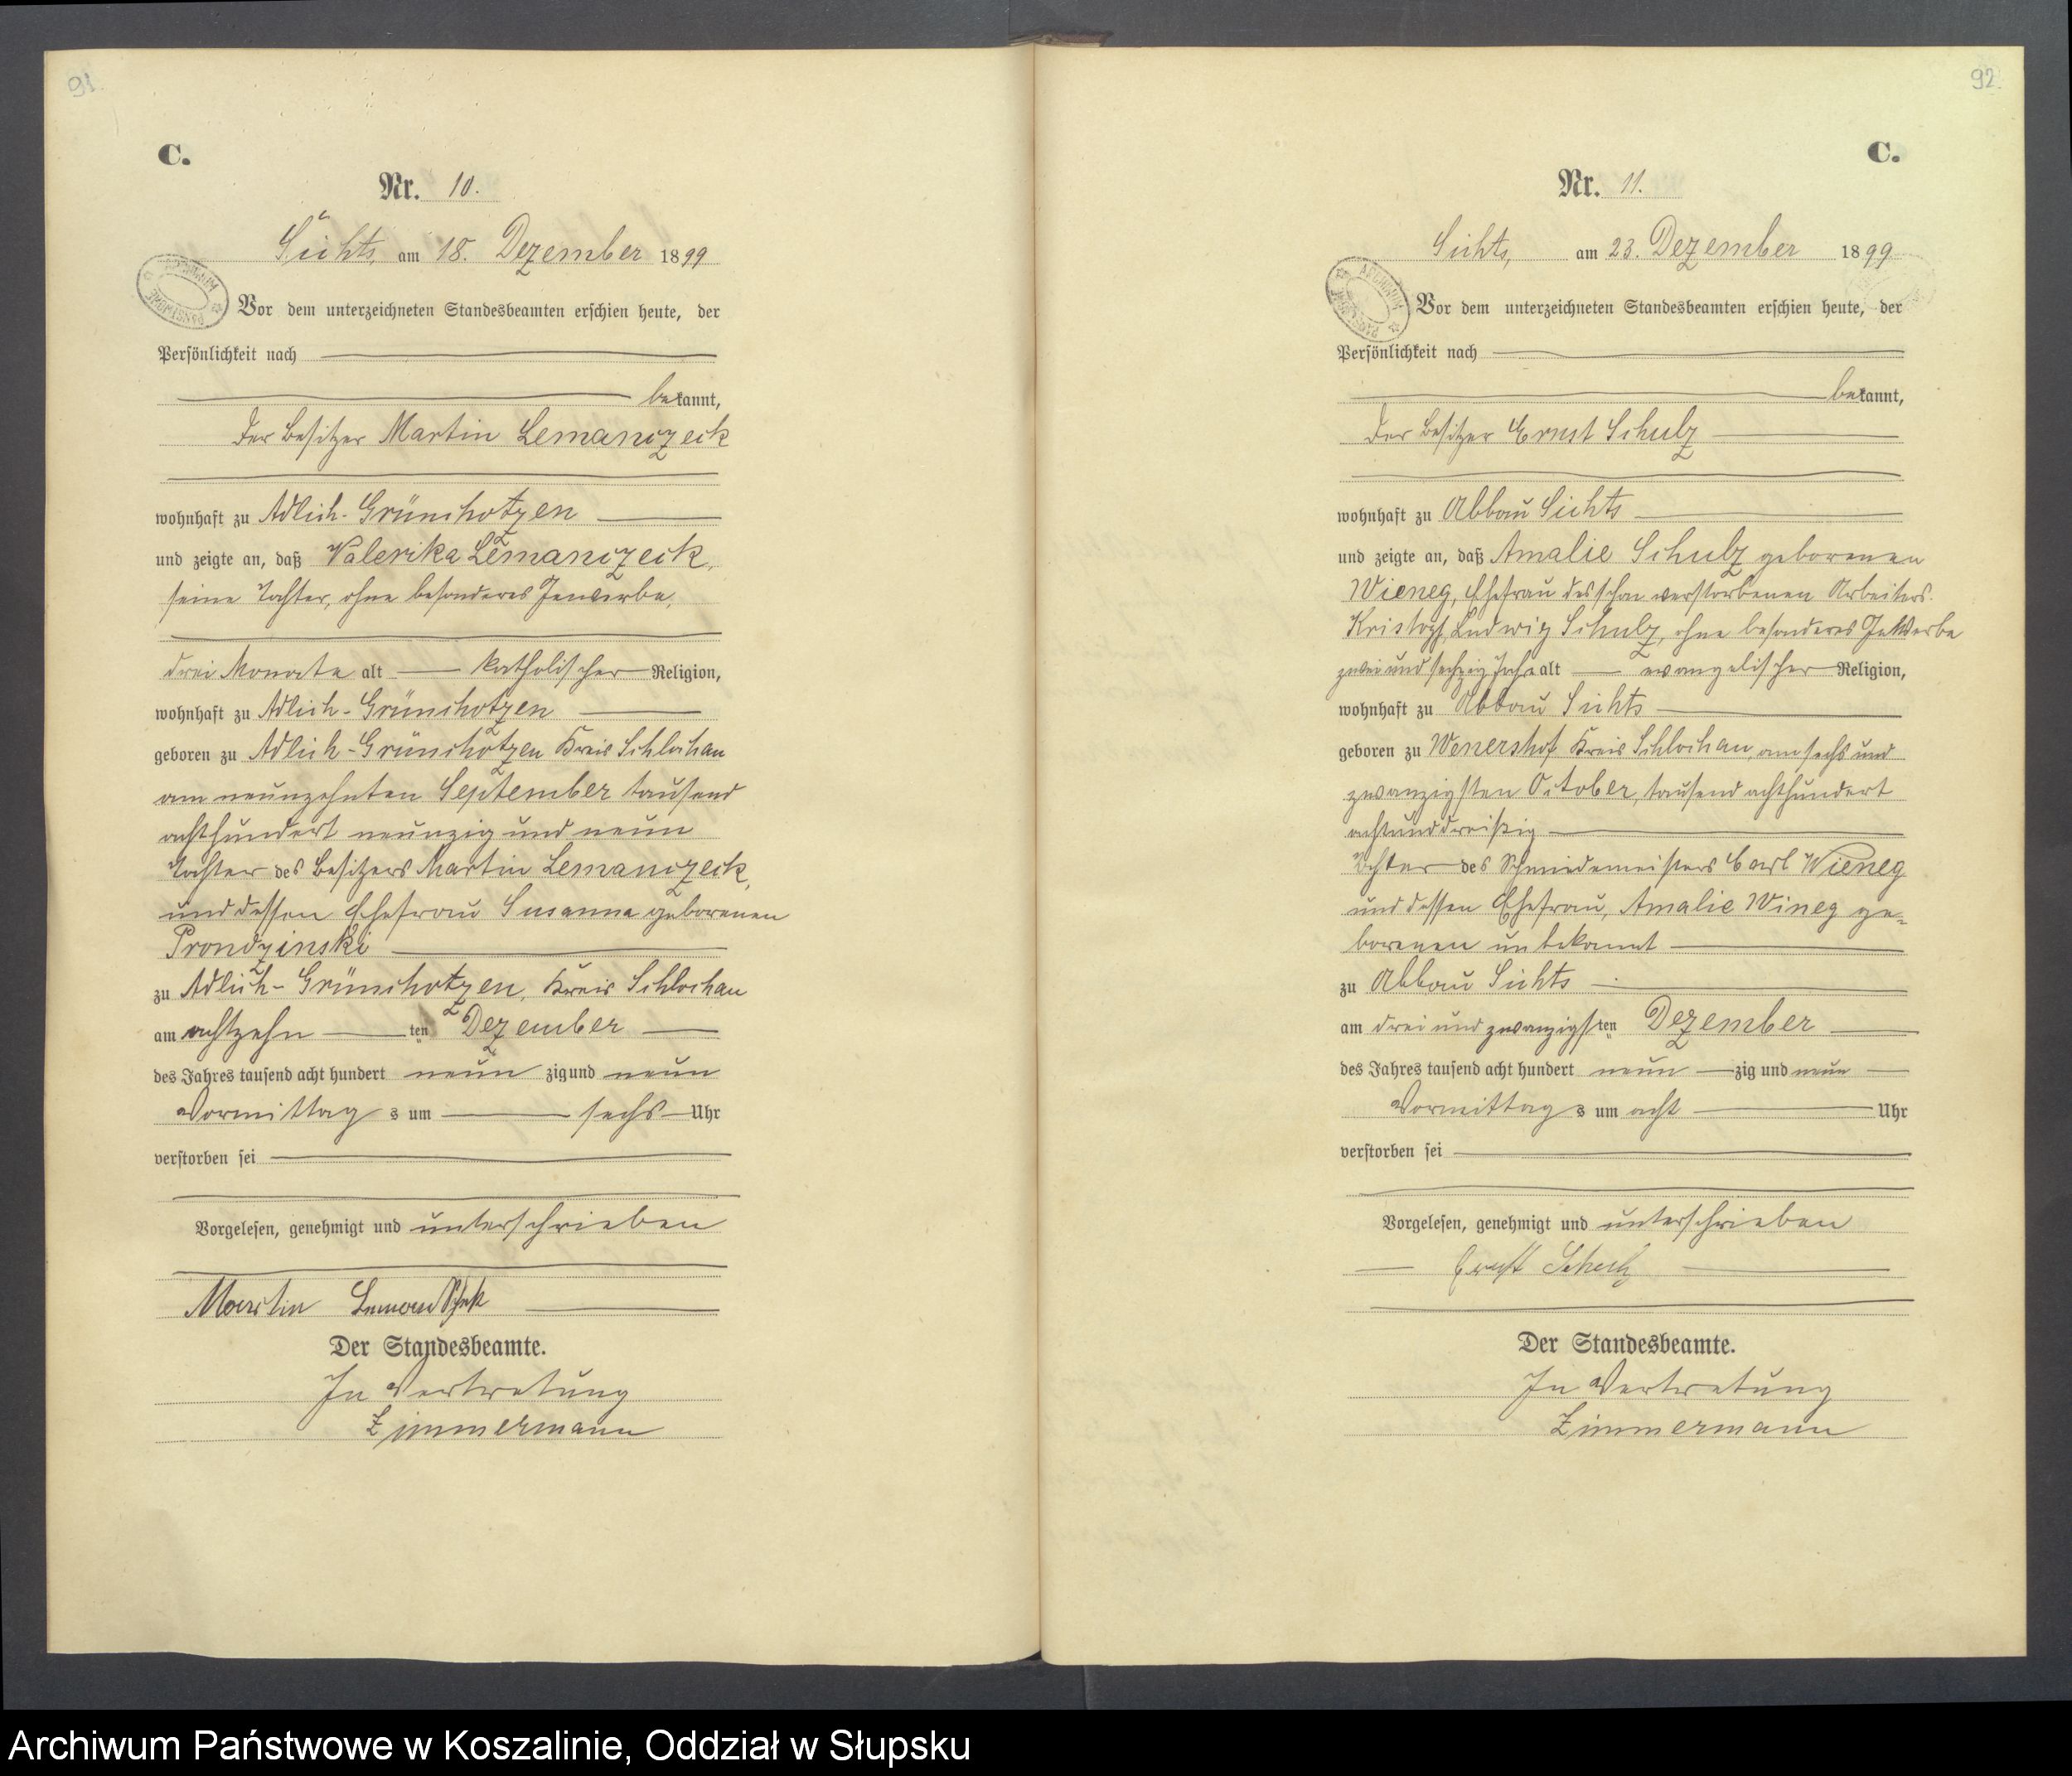 91.
C.
Nr. 10.
Sichts, am 18. Dezember 1899
Vor dem unterzeichneten Standesbeamten erschien heute, der
Persönlichkeit nach
bekannt,
der Besitzer Martin Lemanczeck
wohnhaft zu Adlich-Grünchotzen
und zeigte an, daß Valerika Lemanczeck,
seine Tochter, ohne besonderes Jewerbe,
drei Monate alt katholischer Religion,
wohnhaft zu Adlich-Grünchotzen
geboren zu Adlich-Grünchotzen Kreis Schlochau
am neunzehnten September tausend
achthundert neunzig und neun
Tochter des Besitzers Martin Lemanczeck,
und dessen Ehefrau Susanna geborenen
Prondzinski
zu Adlich-Grünchotzen, Kreis Schlochau
am achtzehn ten Dezember
des Jahres tausend acht hundert neun zig und neun
Vormittag s um sechs Uhr
verstorben sei
Vorgelesen, genehmigt und unterschrieben
Martin
Der Standesbeamte.
In Vertretung
Zimmermann
92.
C.
Nr. 11.
Sichts, am 23. Dezember 1899
Vor dem unterzeichneten Standesbeamten erschien heute, der
Persönlichkeit nach
bekannt,
der Besitzer Ernst Schulz
wohnhaft zu Abbau Sichts
und zeigte an, daß Amalie Schulz geborenen
Wieneg, Ehefrau des schon verstorbenen Arbeiters
Kristoph Ludwig Schulz, ohne besonderes Jewerbe
zwei und sechzig Jahre alt evangelischer Religion,
wohnhaft zu Abbau Sichts
geboren zu Wenershof Kreis Schlochau, am sechs und
zwanzigsten October, tausend achthundert
achtunddreißig
Tochter des Schmiedemeisters Carl Wieneg
und dessen Ehefrau, Amalie Wineg ge-
borenen unbekannt
zu Abbau Sichts
am drei und zwanzigsten Dezember
des Jahres tausend acht hundert neun zig und neun
Vormittag s um acht Uhr
verstorben sei
Vorgelesen, genehmigt und unterschrieben
Ernst Schulz
Der Standesbeamte.
In Vertretung
Zimmermann
Archiwum Państwowe w Koszalinie, Oddział w Słupsku